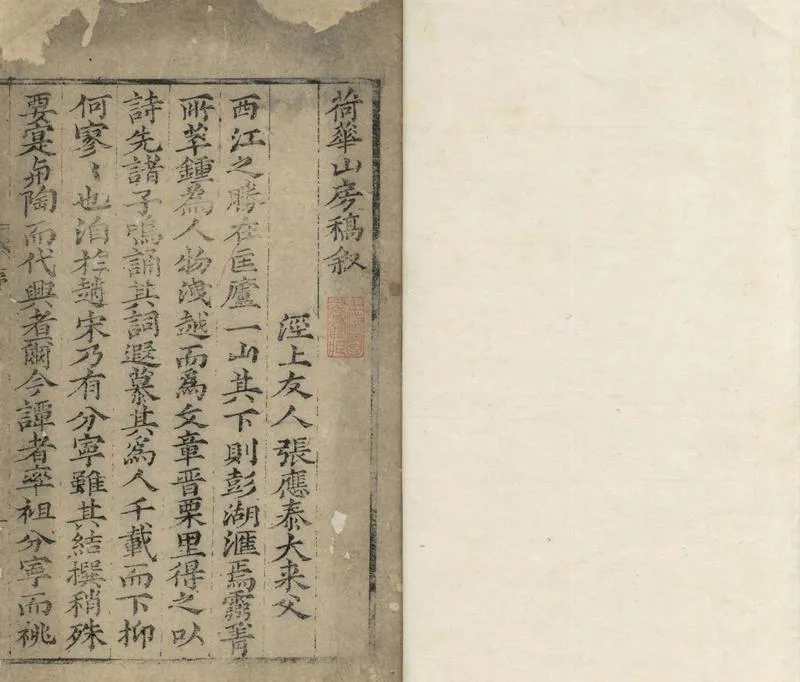 荷華山房稿叙
涇上友人張應泰大来父
西江之勝在匡廬一山其下則彭湖滙焉靈菁
所萃鍾為人物洩越而為文章晋栗里得之以
詩先諸子鳴誦其詞遐慕其為人千載而下抑
何寥〻也洎於趙宋乃有分寧雖其結撰稍殊
要寔與陶而代興者爾今譚者率祖分寧而祧